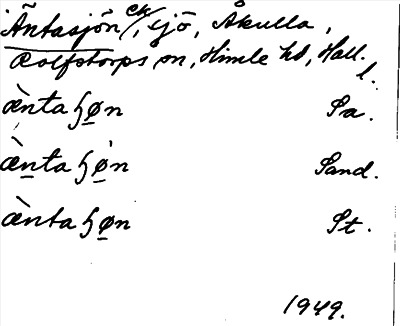 Äntasjön ck/, sjö, Åkulla,
Rolfstorps sn, Himle hd, Hall.
l.
æ̀ntaɧø̲n Sa.
æ̀n̲taɧø̲̀n Sand.
æ̀ntaɧø̲n St.
1949.